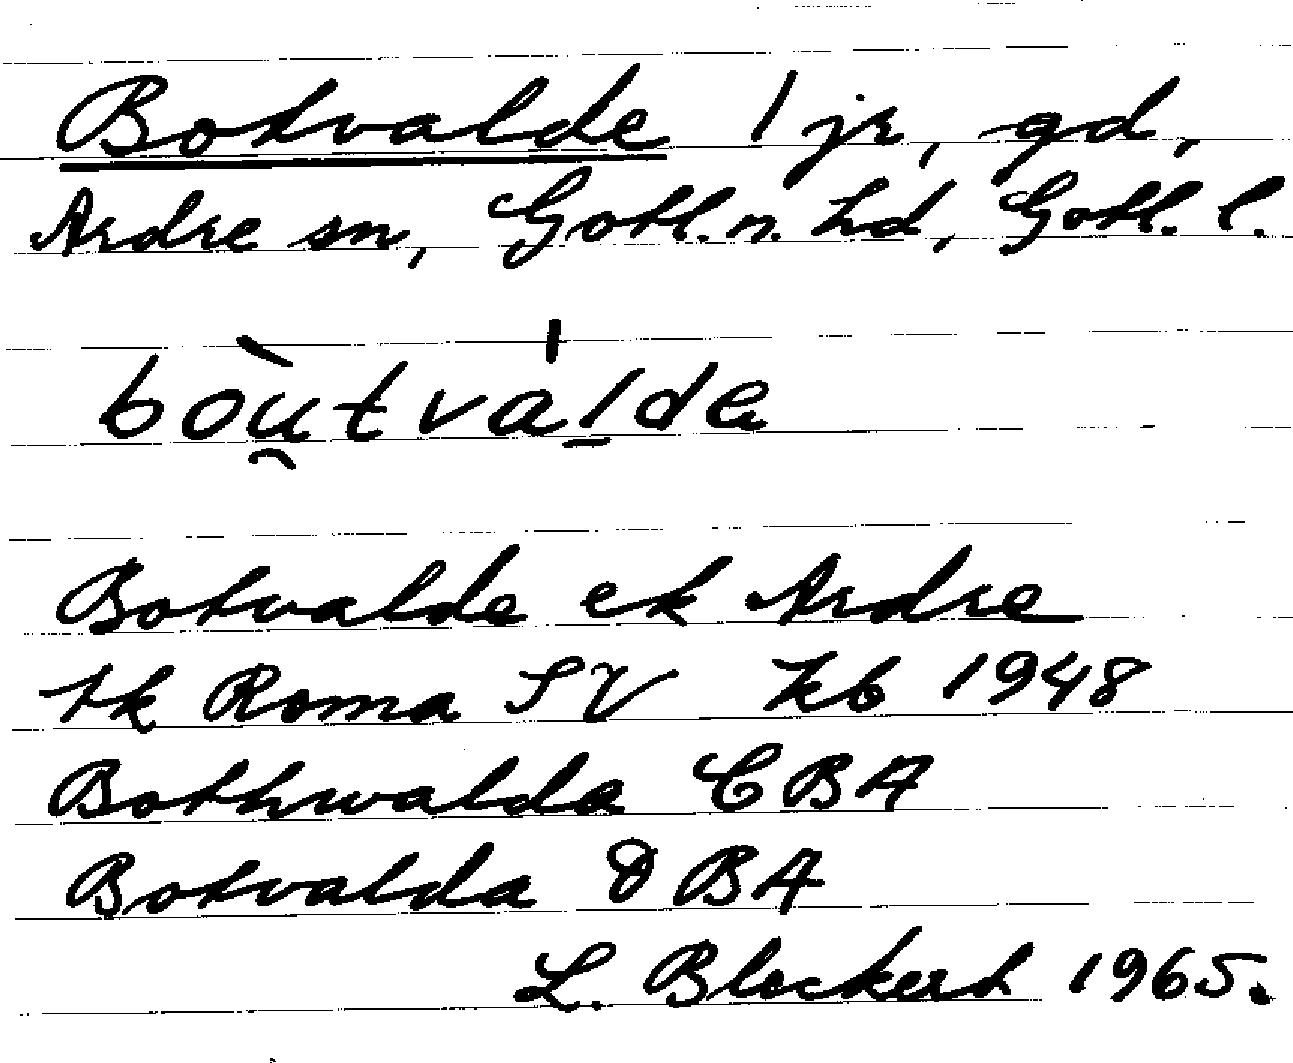 Botvalde 1 jr, gd,
Ardre sn, Gotl. n. hd, Gotl. l.
bòu̯tvàl̠de
Botvalde ek Ardre
tk Roma SV Kb 1948
Bothwalda CBA
Botvalda DBA
L. Bleckert 1965.